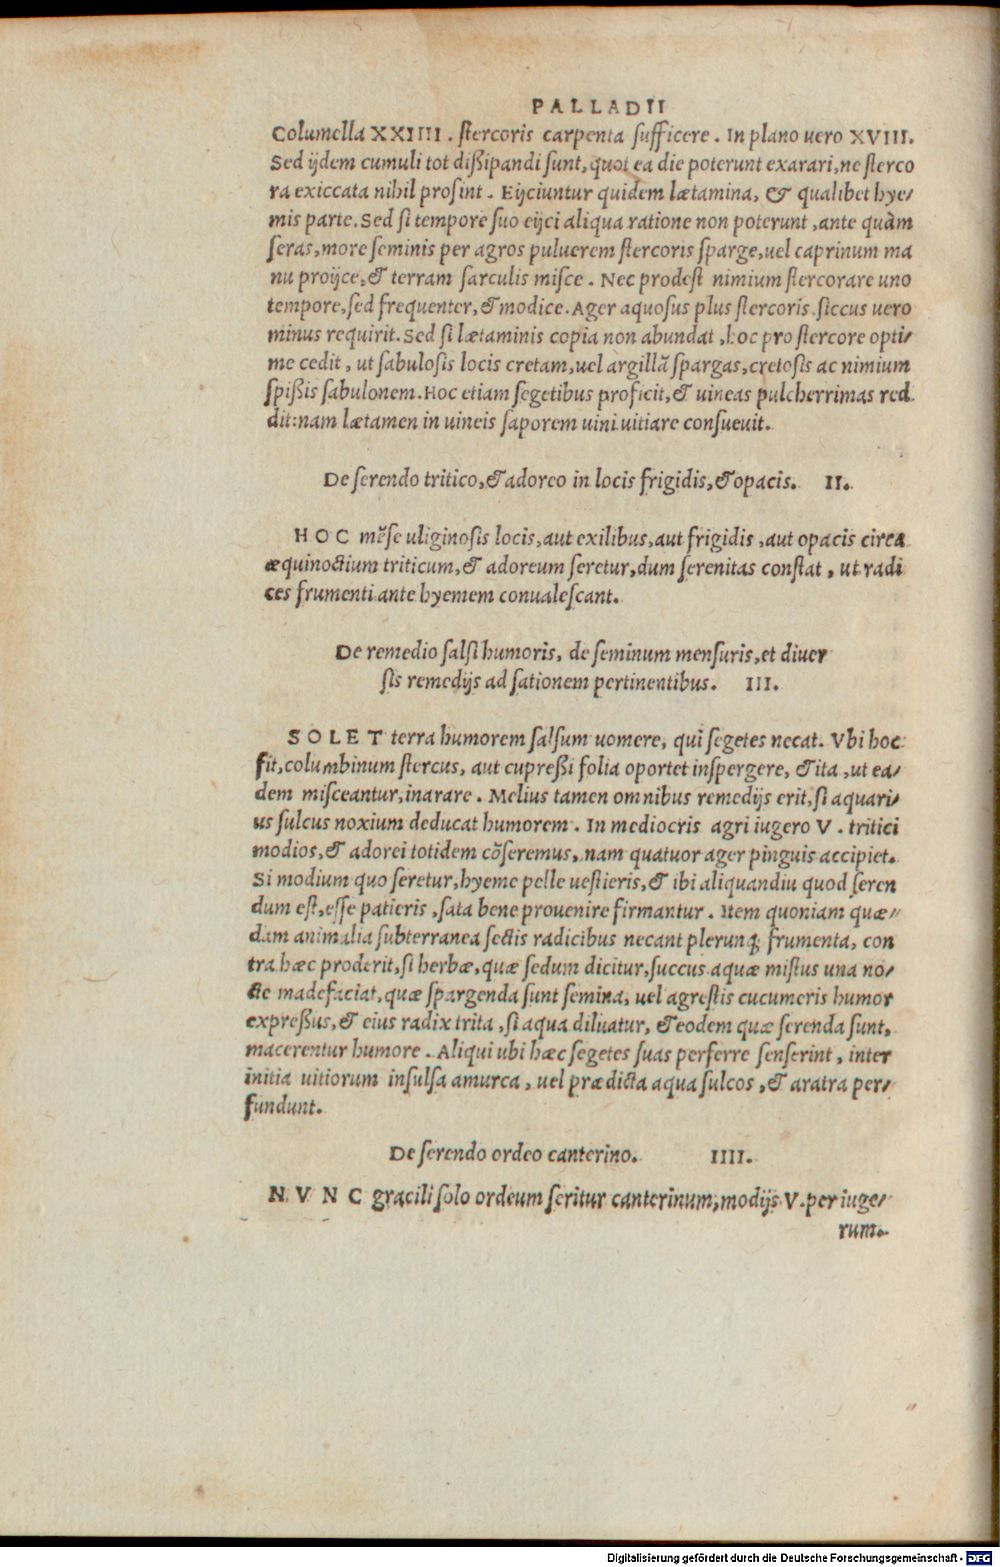 PALLADII
Columella XXIIII. stercoris carpenta sufficere. In plano uero XVIII.
Sed ijdem cumuli tot dißipandi sunt, quot ea die poterunt exarari, ne sterco
ra exiccata nihil prosint. Eijciuntur quidem lætamina, & qualibet hye⸗
mis parte. Sed si tempore suo eijci aliqua ratione non poterunt, ante quàm
seras, more seminis per agros puluerem stercoris sparge, uel caprinum ma
nu proijce, & terram sarculis misce. Nec prodest nimium stercorare uno
tempore, sed frequenter, & modice. Ager aquosus plus stercoris. siccus uero
minus requirit. Sed si lætaminis copia non abundat, hoc pro stercore opti⸗
me cedit, ut sabulosis locis cretam, uel argillā spargas, cretosis ac nimium
spißis sabulonem. Hoc etiam segetibus proficit, & uineas pulcherrimas red
dit: nam lætamen in uineis saporem uini uitiare consueuit.
De serendo tritico, & adoreo in locis frigidis, & opacis. II.
HOC mēse uliginosis locis, aut exilibus, aut frigidis, aut opacis circa
æquinoctium triticum, & adoreum seretur, dum serenitas constat, ut radi
ces frumenti ante hyemem conualescant.
De remedio salsi humoris, de seminum mensuris, et diuer
sis remedijs ad sationem pertinentibus. III.
SOLET terra humorem salsum uomere, qui segetes necat. Vbi hoc
fit, columbinum stercus, aut cupreßi folia oportet inspergere, & ita, ut ea⸗
dem misceantur, inarare. Melius tamen omnibus remedijs erit, si aquari⸗
us sulcus noxium deducat humorem. In mediocris agri iugero V. tritici
modios, & adorei totidem cōseremus, nam quatuor ager pinguis accipiet.
Si modium quo seretur, hyeme pelle uestieris, & ibi aliquandiu quod seren
dum est, esse patieris, sata bene prouenire firmantur. Item quoniam quæ⸗
dam animalia subterranea sectis radicibus necant plerunq; frumenta, con
tra hæc proderit, si herbæ, quæ sedum dicitur, succus aquæ mistus una no⸗
cte madefaciat, quæ spargenda sunt semina, uel agrestis cucumeris humor
expreßus, & eius radix trita, si aqua diluatur, & eodem quæ serenda sunt,
macerentur humore. Aliqui ubi hæc segetes suas perferre senserint, inter
initia uitiorum insulsa amurca, uel prædicta aqua sulcos, & aratra per⸗
fundunt.
De serendo ordeo canterino. IIII.
NVNC gracili solo ordeum seritur canterinum, modijs V. per iuge⸗
rum.
Digitalisierung gefördert durch die Deutsche Forschungsgemeinschaft - DFG